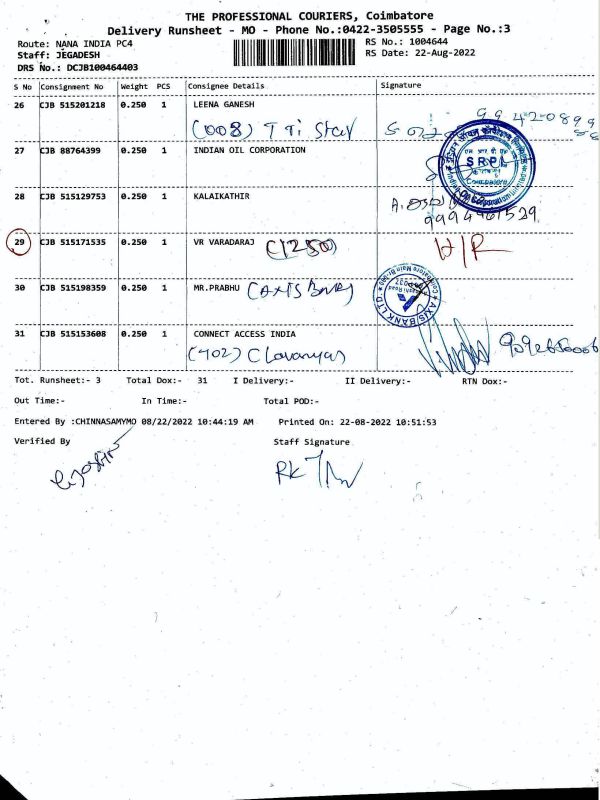 THE PROFESSIONAL COURIERS, Coimbatore
Delivery Runsheet - MO - Phone No.:0422-3505555 - Page No.:3
Route: NANA INDIA PC4
RS No.: 1004644
Staff: JEGADESH
RS Date: 22-Aug-2022
DRS No.: DCJB100464403
S No Consignment No Weight PCS Consignee Details Signature
26 CJB 515201218 0.250 1 LEENA GANESH
(008)
27 CJB 88764399 0.250 1 INDIAN OIL CORPORATION
SRPL
Coimbatore
28 CJB 515129753 0.250 1 KALAIKATHIR
29 CJB 515171535 0.250 1 VR VARADARAJ (1250) H/R
30 CJB 515198359 0.250 1 MR.PRABHU (AXIS Bank)
AXIS BANK LTD
31 CJB 515153608 0.250 1 CONNECT ACCESS INDIA
(402)
Tot. Runsheet:- 3 Total Dox:- 31 I Delivery:- II Delivery:- RTN Dox:-
Out Time:- In Time:- Total POD:-
Entered By :CHINNASAMYMO 08/22/2022 10:44:19 AM Printed On: 22-08-2022 10:51:53
Verified By Staff Signature